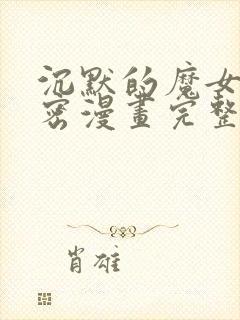 沉默的魔女
密漫畫完整
肖雄